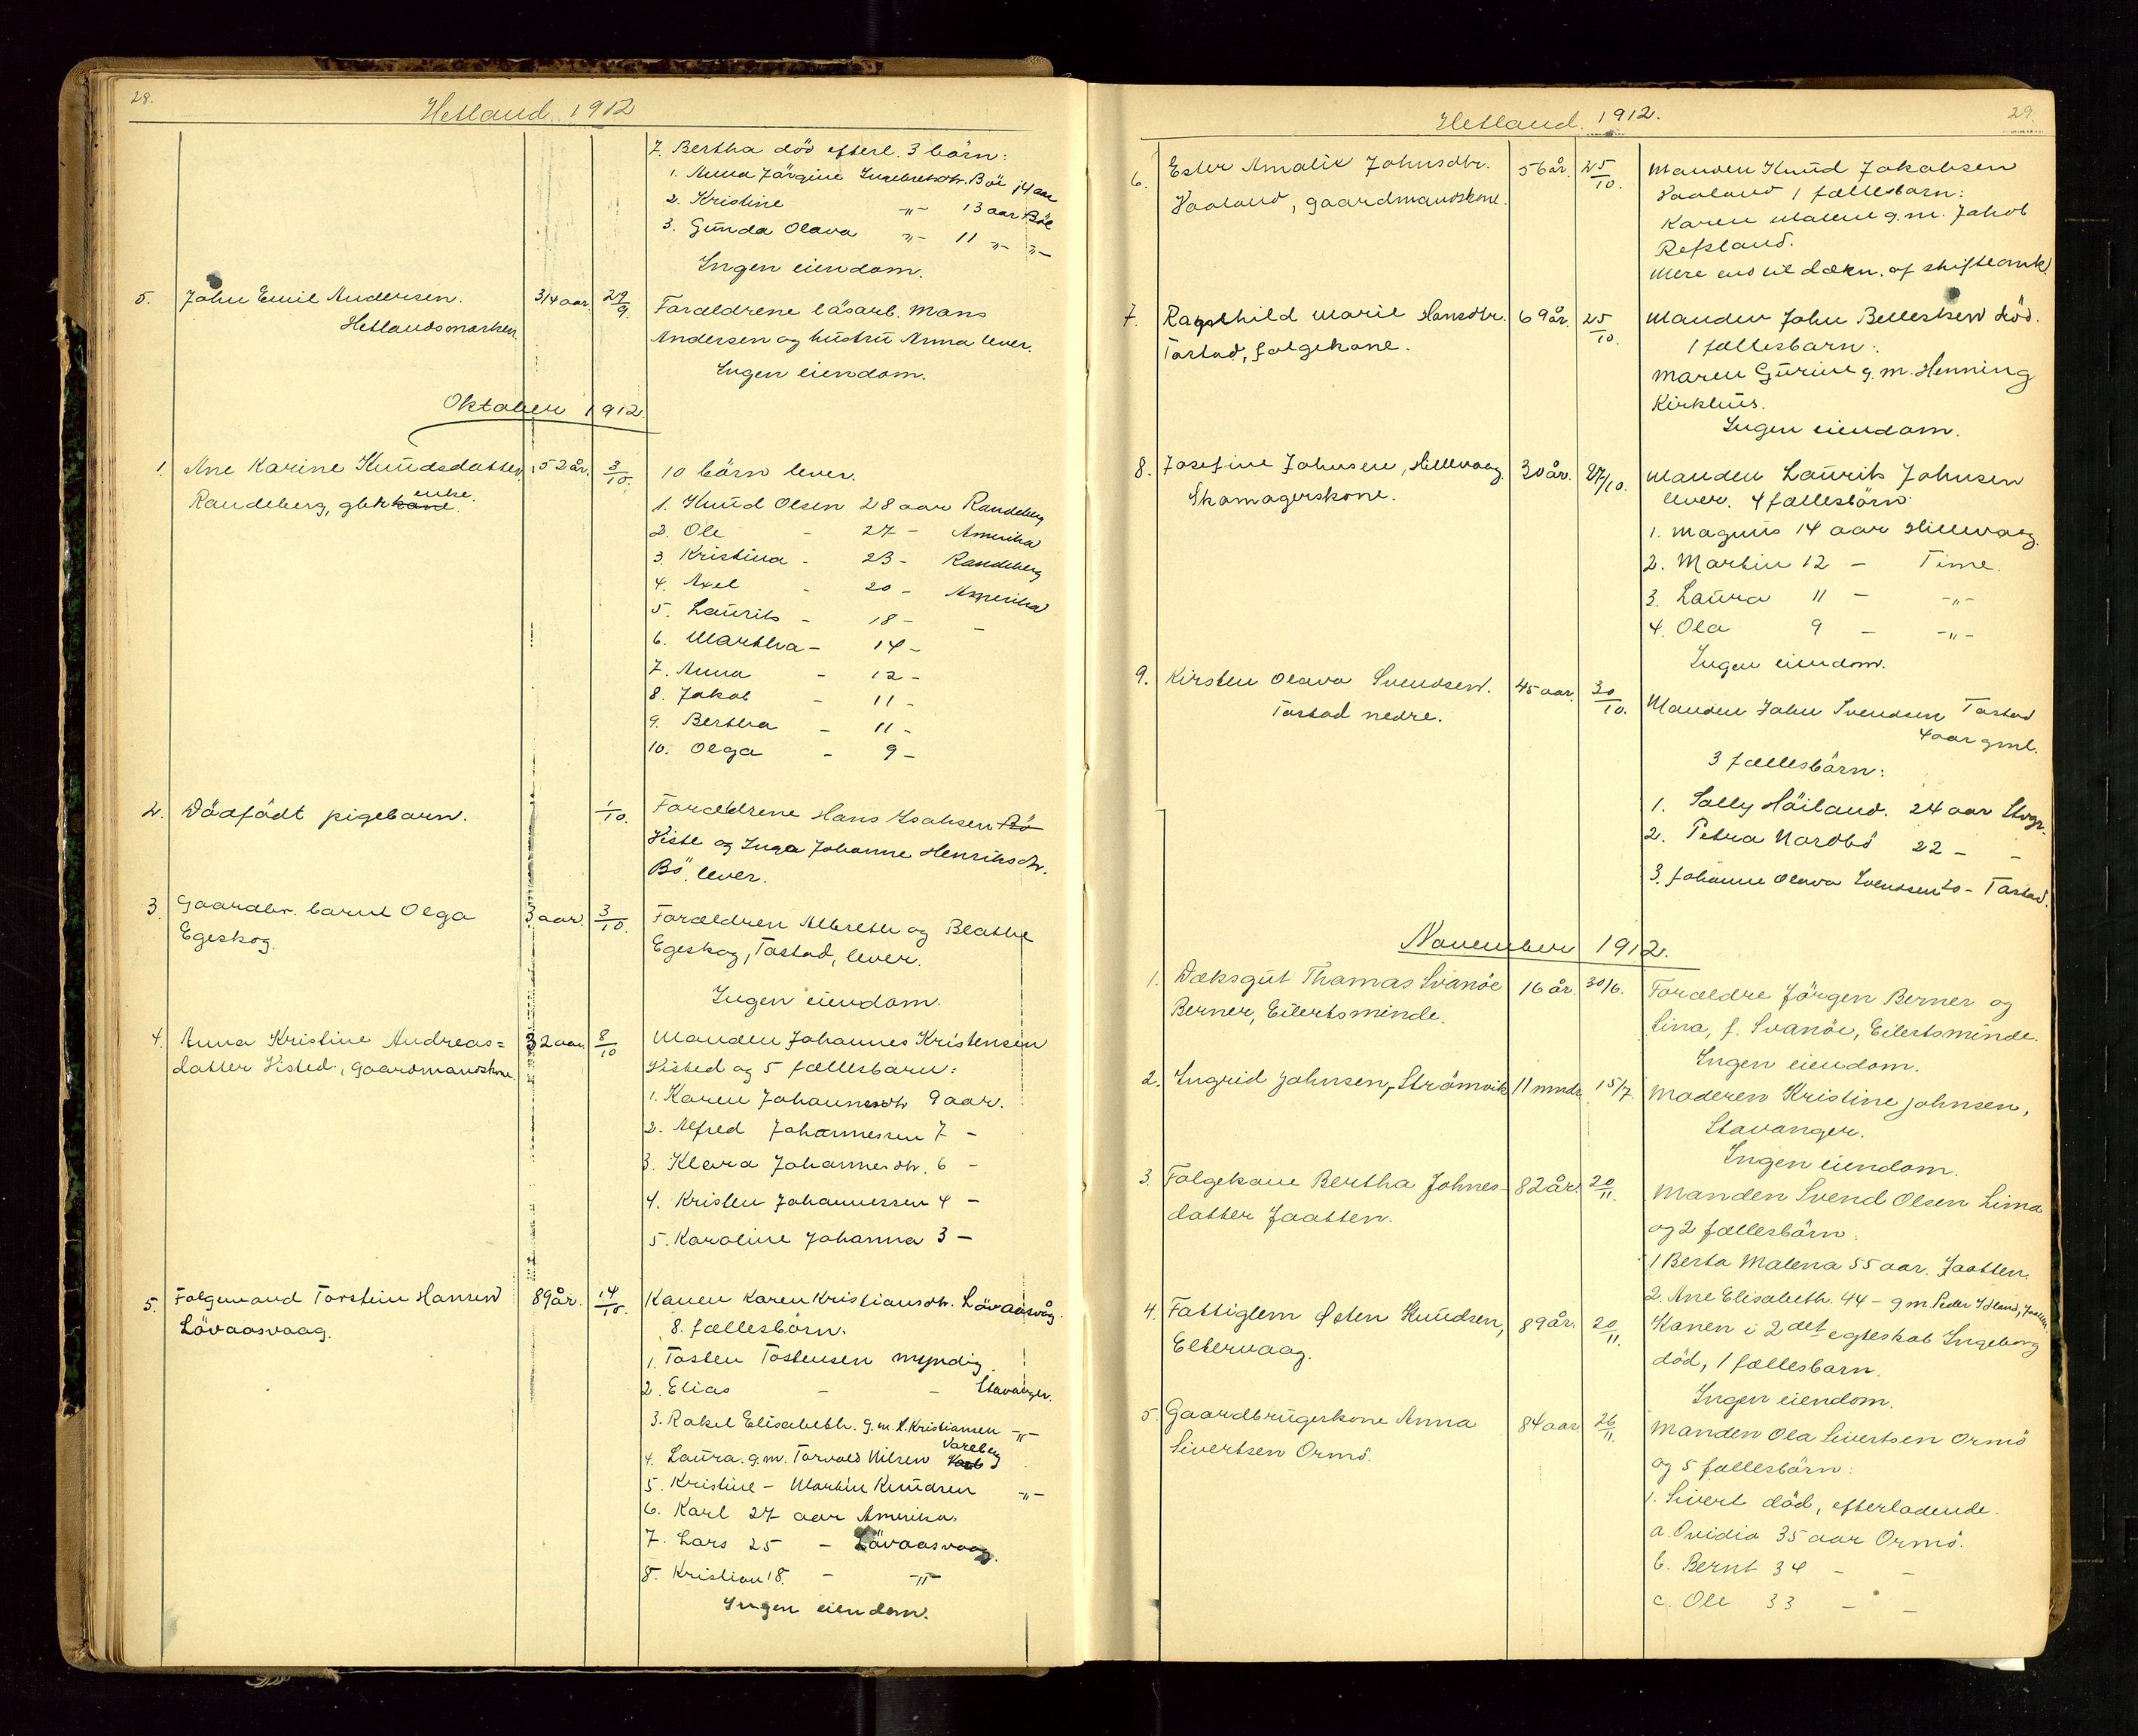 28.
Hetland 1912
7. Bertha död efterl. 3 börn:
1. Anna Jörgine Ingebretsdtr. Böe 14 aar
2. Kristine -"- 13 aar Böe
3. Gunda Olava -"- 11 -"- -"-
Ingen eiendom.
5. John Emil Andersen. 3/4 aar 29/9. Forældrene låsarb. Mans
Hetlandsmarken Andersen og hustru Anna lever.
Ingen eiendom.
Oktober 1912.
1. Ane Karine Knudsdatter 52 år. 3/10. 10 börn lever.
Randeberg, gbr kone enke.
1. Knud Olsen 28 aar Randeberg
2. Ole - 27 - Amerika
3. Kristina - 23 - Randeberg
4. Axel - 20 - Amerika
5. Laurits - 18 - -
6. Martha - 14 -
7. Anna - 12 -
8. Jakob - 11 -
9. Bertha - 11 -
10. Olga - 9 -
2. Dödfödt pigebarn. 1/10. Forældrene Hans Isaksen Bö
Viste og Inga Johanne Henriksdtr.
Bö. lever.
3. Gaardbr. barnet Olga 3 aar. 3/10. Forældren Albreth og Beathe
Egeskog. Egeskog, Tastad, lever.
Ingen eiendom.
4. Anna Kristine Andreas= 32 aar. 8/10 Manden Johannes Kristensen
datter Visted, gaardmandskone. Visted og 5 fællesbarn:
1. Karen Johannesdtr 9 aar.
2. Alfred Johannessen 7 -
3. Klara Johannesdtr. 6 -
4. Kristen Johannessen 4 -
5. Karoline Johanna 3 -
5. Folgemand Torstein Hansen 89 år. 14/10. Konen Karen Kristiansdtr. Lövaasvåg.
Lövaasvaag. 8. fællesbörn.
1. Tosten Tostensen myndig.
2. Elias - - Stavanger.
3. Rakel Elisabeth. g.m. A. Kristiansen -"-
4. Laura. g.m. Torvald Nilsen Vareberg
5. Kristine - Martin Knudsen -"-
6. Karl 27 aar Amerika
7. Lars 25 - Lövaasvaag.
8. Kristian 18. - -"-
Ingen eiendom.
Hetland. 1912.
29.
6. Ester Amalie Johnsdtr. 56 år. 25/10. Manden Knud Jakobsen
Vaaland, gaardmandskone. Vaaland 1 fællesbarn:
Karen Malene g.m. Jakob
Refsland.
Mere end til dækn. af skifteomk.
7. Ragnhild Marie Hansdtr. 69 år. 25/10. Manden John Bellesen död.
Tastad, folgekone. 1 fællesbarn:
Maren Gurine g.m. Henning
Kirkhus.
Ingen eiendom.
8. Josefine Johnsen, Hillevaag. 30 år. 27/10. Manden Laurits Johnsen
Skomagerskone. lever. 4 fællesbörn
1. Magnus 14 aar Hillevaag.
2. Martin 12 - Time.
3. Laura 11 - -"-
4. Ola 9 - -"-
Ingen eiendom.
9. Kirsten Olava Svendsen. 45 aar. 30/10. Manden John Svendsen Tastad
Tastad nedre. 4 aar gml.
3 fællesbörn:
1. Solly Höiland. 24 aar Stvgr.
2. Petra Nordbö 22 - -
3. Johanne Olava Svendsen - Tastad.
November 1912.
1. Dæksgut Thomas Svanöe 16 år. 30/6. Forældre Jörgen Berner og
Berner, Eilertsminde. Lina, f. Svanöe, Eilertsminde.
Ingen eiendom.
2. Ingrid Johnsen, Strömvik 11 mndr. 15/7. Moderen Kristine Johnsen,
Stavanger.
Ingen eiendom.
3. Folgekone Bertha Johnes- 82 år. 20/11. Manden Svend Olsen Lima
datter Jaatten. og 2 fællesbörn.
1 Berta Malena 55 aar. Jaatten.
2. Ane Elisabeth. 44 - g.m. Peder Idland, Jaatten.
4. Fattiglem Østen Knudsen, 89 år. 20/11. Konen i 2det egteskab Ingeborg
Eltervaag. död, 1 fællesbarn.
Ingen eiendom.
5. Gaardbrugerkone Anna 84 aar. 26/11. Manden Ola Sivertsen Ormö
Sivertsen Ormö. og 5 fællesbörn:
1. Sivert död, efterladende.
a. Ovidia 35 aar Ormö.
b. Bernt 34 - -
c. Ole 33 - -